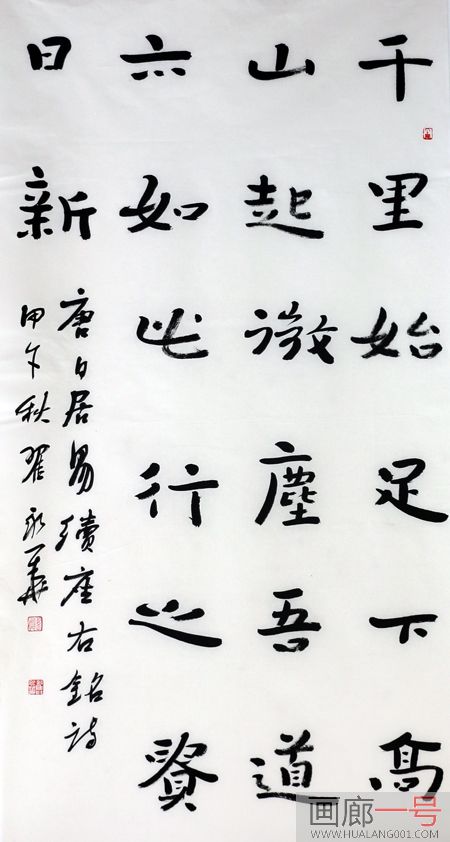 千里始足下高
山起微塵吾道
亦如此行之賢
日新
唐白居易續座右銘詩
甲午秋翟永華
画廊一号
WWW.HUALANG001.COM